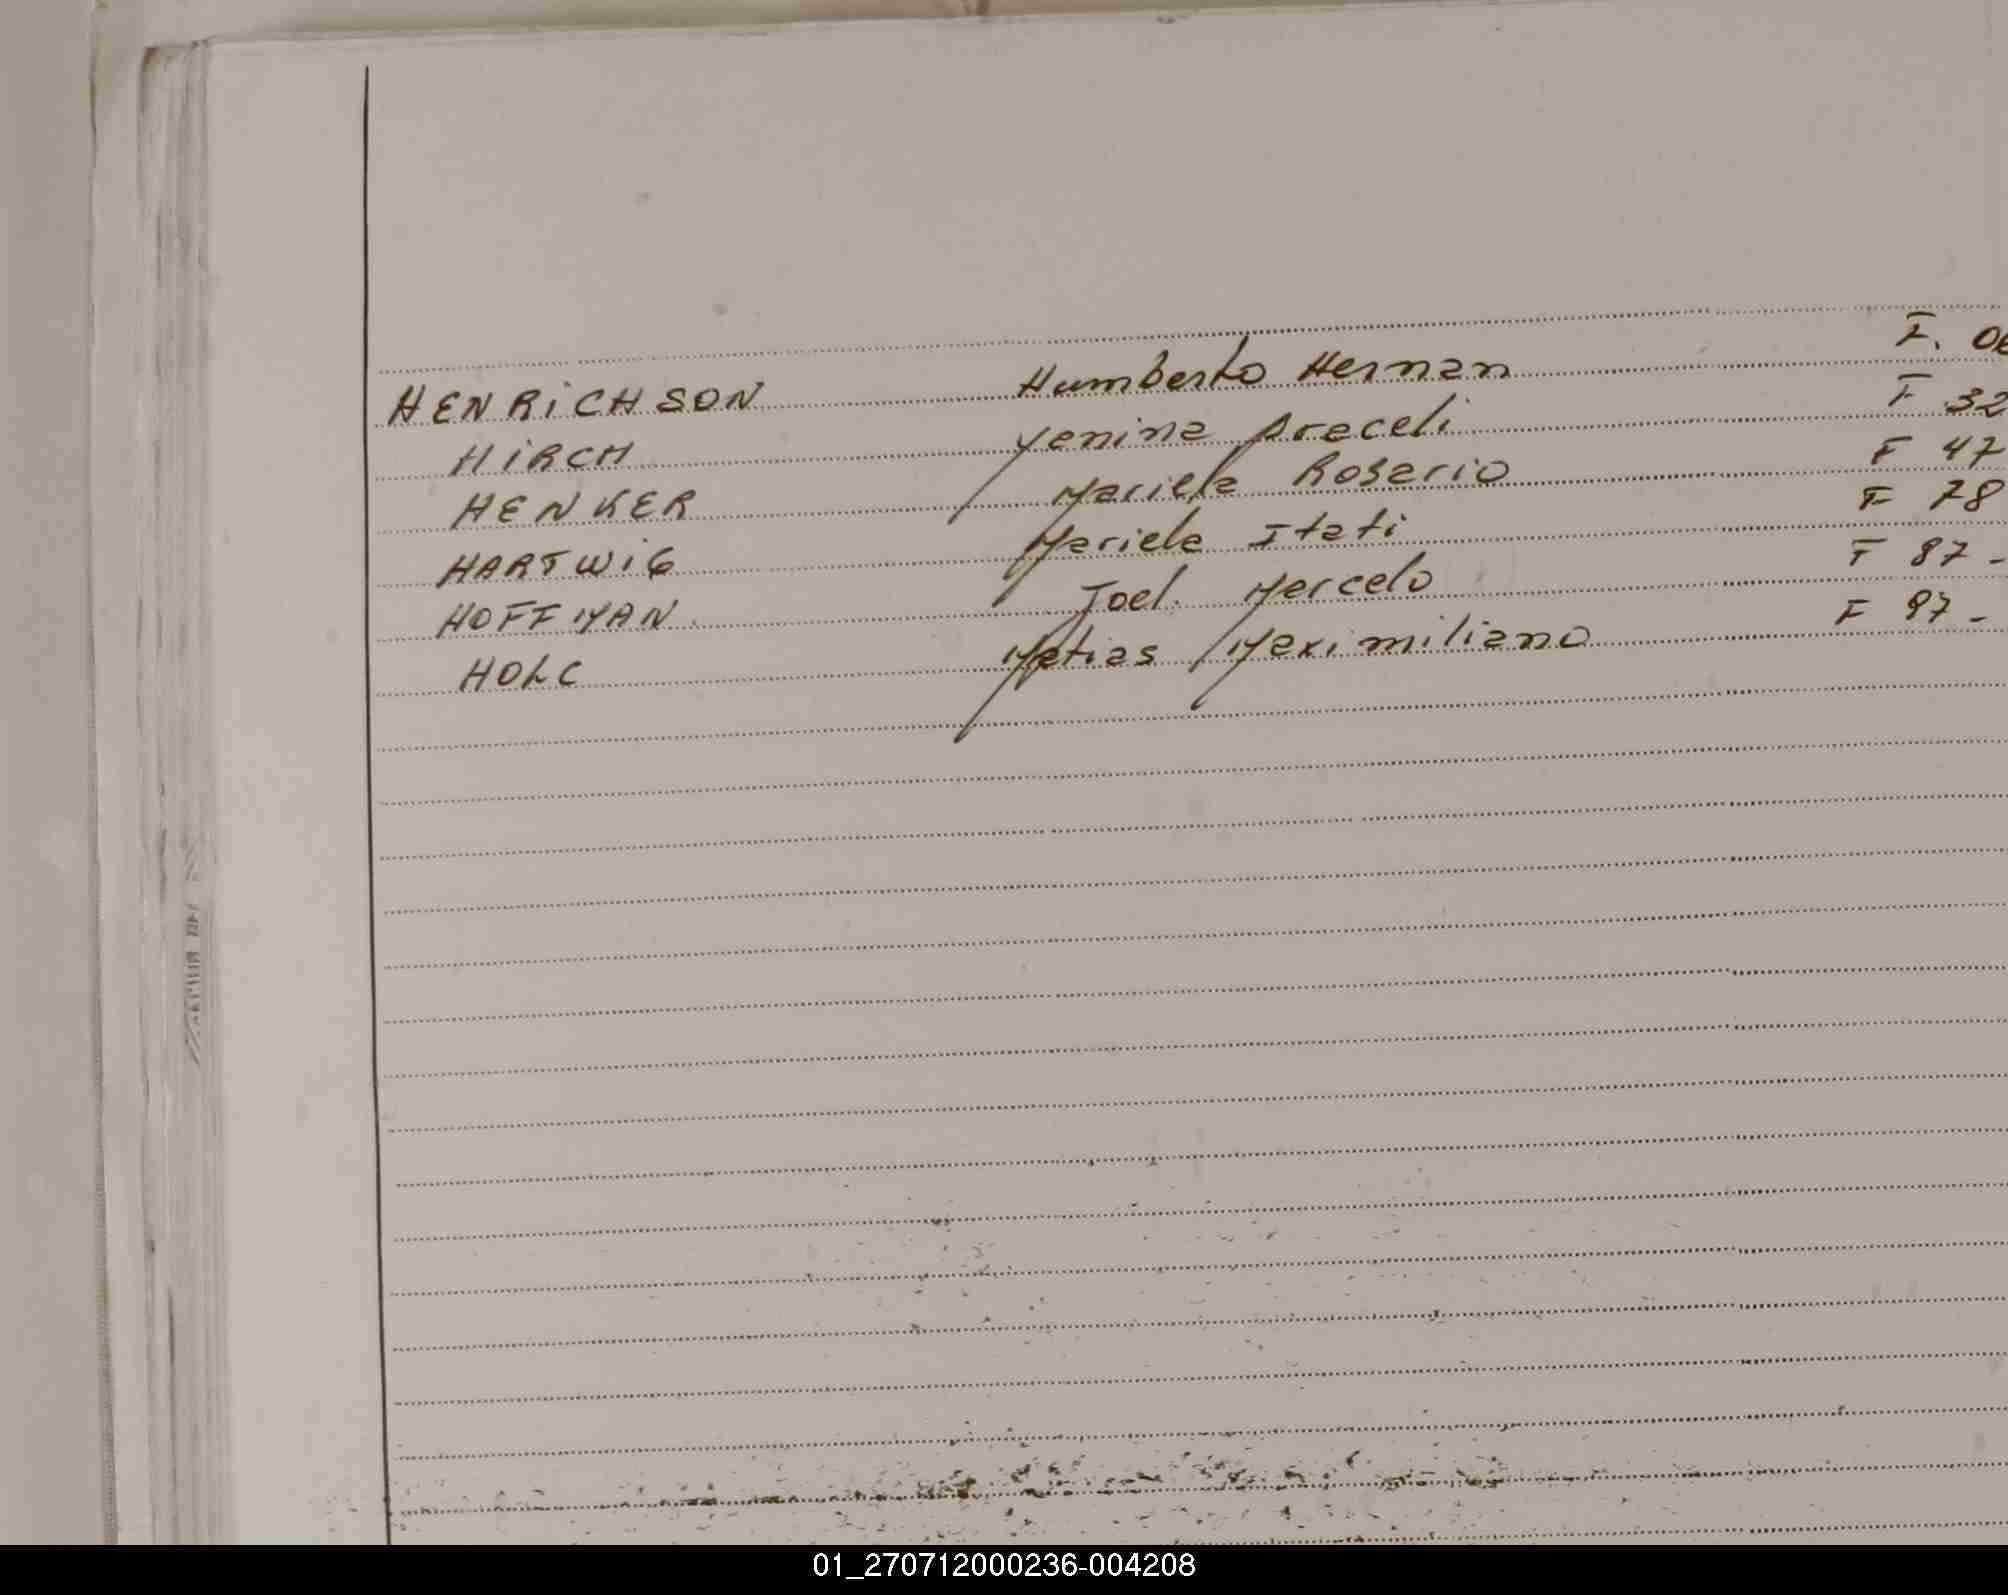 HENRICHSON Humberto Hernan F. 06
HIRCH Yanina Araceli F 32
HENKER Mariela Rosario F 47
HARTWIG Mariela Itati F 78
HOFFMAN Joel Marcelo F 87 -
HOLC Matias Maximiliano F 97 -
01_270712000236-004208